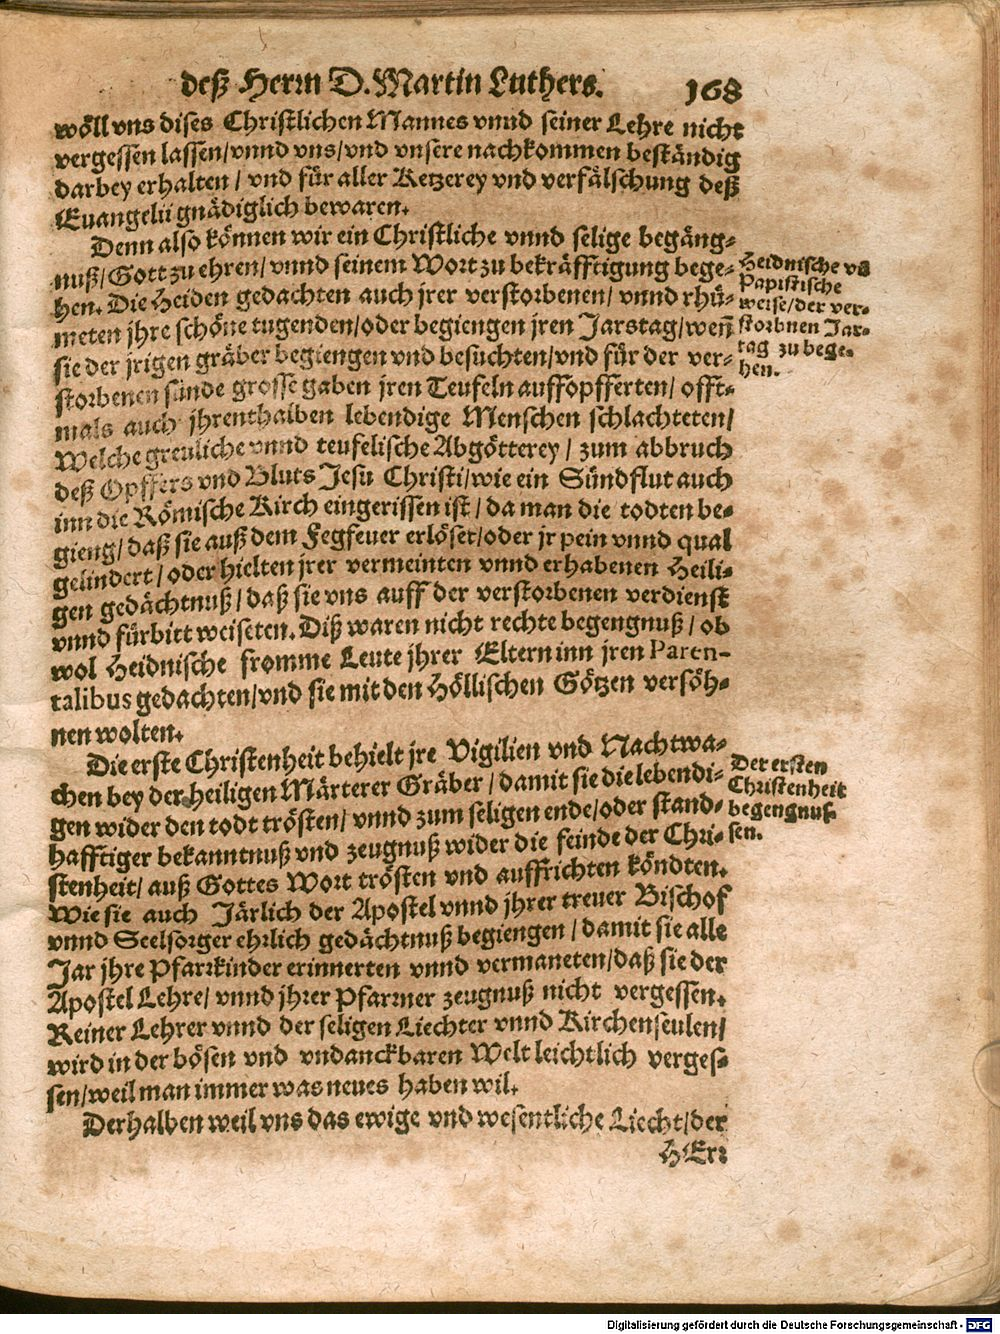 deß Herrn D. Martin Luthers. 168
wöll vns dises Christlichen Mannes vnnd seiner Lehre nicht
vergessen lassen/vnnd vns/vnd vnsere nachkommen beständig
darbey erhalten / vnd für aller Ketzerey vnd verfälschung deß
Euangelii gnädiglich bewaren.
Denn also können wir ein Christliche vnnd selige begäng-
nuß/Gott zu ehren/vnnd seinem Wort zu bekräfftigung bege-
hen. Die Heiden gedachten auch jrer verstorbenen/ vnnd rhü-
meten jhre schöne tugenden/oder begiengen jren Jarstag/wen̄
sie der jrigen gräber begiengen vnd besuchten/vnd für der ver-
storbenen sünde grosse gaben jren Teufeln auffopfferten/ offt-
mals auch jhrenthalben lebendige Menschen schlachteten/
Welche greuliche vnnd teufelische Abgötterey / zum abbruch
deß Opffers vnd Bluts Jesu Christi/wie ein Sündflut auch
inn die Römische Kirch eingerissen ist / da man die todten be-
gieng/ daß sie auß dem Fegfeuer erlöset/oder jr pein vnnd qual
gelindert / oder hielten jrer vermeinten vnnd erhabenen Heili-
gen gedächtnuß / daß sie vns auff der verstorbenen verdienst
vnnd fürbitt weiseten. Diß waren nicht rechte begengnuß / ob
wol Heidnische fromme Leute jhrer Eltern inn jren Paren-
talibus gedachten/vnd sie mit den Höllischen Götzen versöh-
nen wolten.
Heidnische vn̄
Papistische
weise/der ver-
storbnen Jar-
tag zu bege-
hen.
Die erste Christenheit behielt jre Vigilien vnd Nachtwa-
chen bey der heiligen Märterer Gräber / damit sie die lebendi-
gen wider den todt trösten/ vnnd zum seligen ende/oder stand-
hafftiger bekanntnuß vnd zeugnuß wider die feinde der Chri-
stenheit/ auß Gottes Wort trösten vnd auffrichten köndten.
Wie sie auch Järlich der Apostel vnnd jhrer treuer Bischof
vnnd Seelsorger ehrlich gedächtnuß begiengen / damit sie alle
Jar jhre Pfarrkinder erinnerten vnnd vermaneten/daß sie der
Apostel Lehre/ vnnd jhrer Pfarrner zeugnuß nicht vergessen.
Reiner Lehrer vnnd der seligen Liechter vnnd Kirchenseulen/
wird in der bösen vnd vndanckbaren Welt leichtlich verges-
sen/weil man immer was neues haben wil.
Der ersten
Christenheit
begengnus-
sen.
Derhalben weil vns das ewige vnd wesentliche Liecht/der
HErr
Digitalisierung gefördert durch die Deutsche Forschungsgemeinschaft - DFG